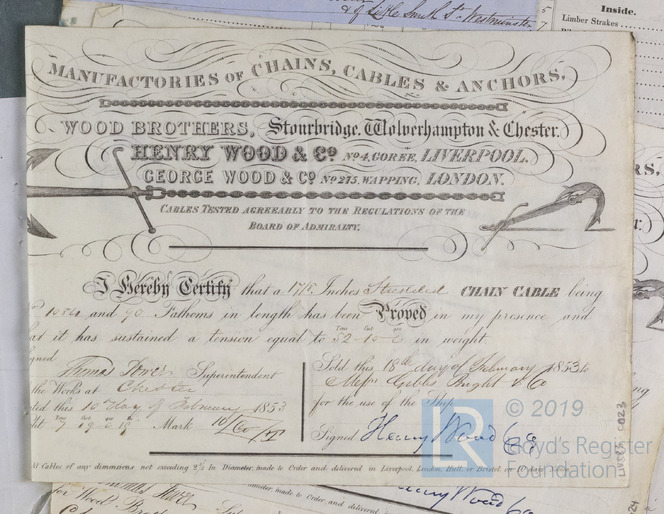 & of Little Smith St. Westminster
Inside.
Limber Strakes
MANUFACTORIES OF CHAINS, CABLES & ANCHORS,
WOOD BROTHERS, Stourbridge, Wolverhampton & Chester.
HENRY WOOD & Co. No. 4, GOREE, LIVERPOOL.
GEORGE WOOD & Co. No. 275, WAPPING, LONDON.
CABLES TESTED AGREEABLY TO THE REGULATIONS OF THE
BOARD OF ADMIRALTY.
I Hereby Certify that a Inches Studded CHAIN CABLE being
and 90 Fathoms in length has been Proved in my presence, and
at it has sustained a tension equal to 52-10-0 in weight
igned
Thomas Superintendent
the Works at Chester
ted this 10 day of February 1853
Mark
Sold this 18th day of February 1853 to
Messrs Gibbs Bright & Co
for the use of the Ship
Signed Henry Wood & Co
ll Cables of any dimensions not exceeding 2½ In Diameter, made to Order and delivered in Liverpool, London, Hull, or Bristol
© 2019
Lloyd's Register
Foundation
made to Order and delivered